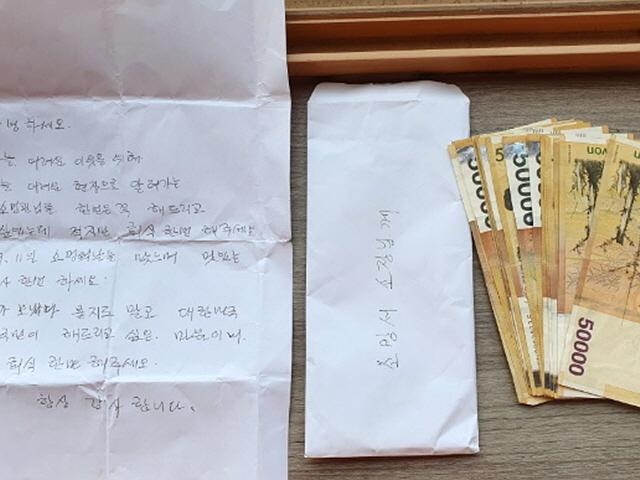 녕하세요.
는, 어려운 이웃을 위해
는 어려운 현장으로 달려가는
소방관님들 한번은 꼭 해드리고
싶었는데 적지만 회식 한번 해주세요
11월 소방의날을 맞으며 맛있는
사 한번 하세요.
가 보냈다 묻지도 말고 대한민국
국민이 해드리고 싶은 마음이니
회식 한번 해주세요.
항상 감사합니다.
소방서 소장님께
50000
50000
50000
50000
won